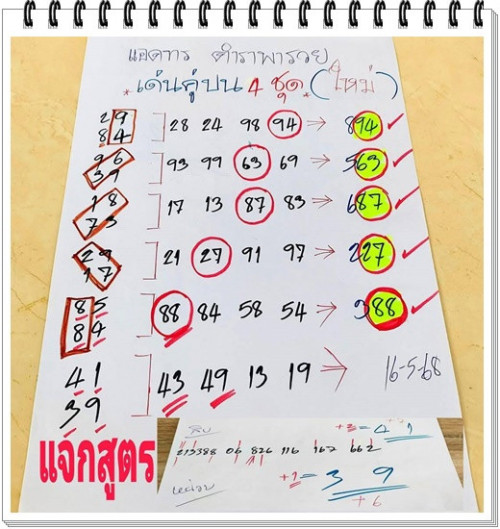 แอดทาร ตำราพารวย
เด่นคู่บน 4 ชุด (ใหม่)
29
84
28 24 98 94 → 894 ✓
96
39
93 99 63 69 → 563 ✓
18
73
17 13 87 83 → 687 ✓
29
17
21 27 91 97 → 227 ✓
85
84
88 84 58 54 → 388 ✓
41
39
43 49 13 19 → 16-5-68
แจกสูตร
สิบ
+3 = 4 1
213388 06 826 116 167 662
หน่วย
+1 = 3 9
+6